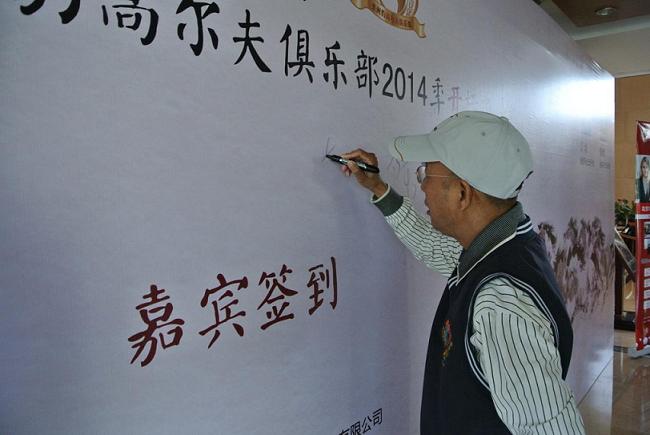 高尔夫俱乐部2014季开
嘉宾签到
有限公司